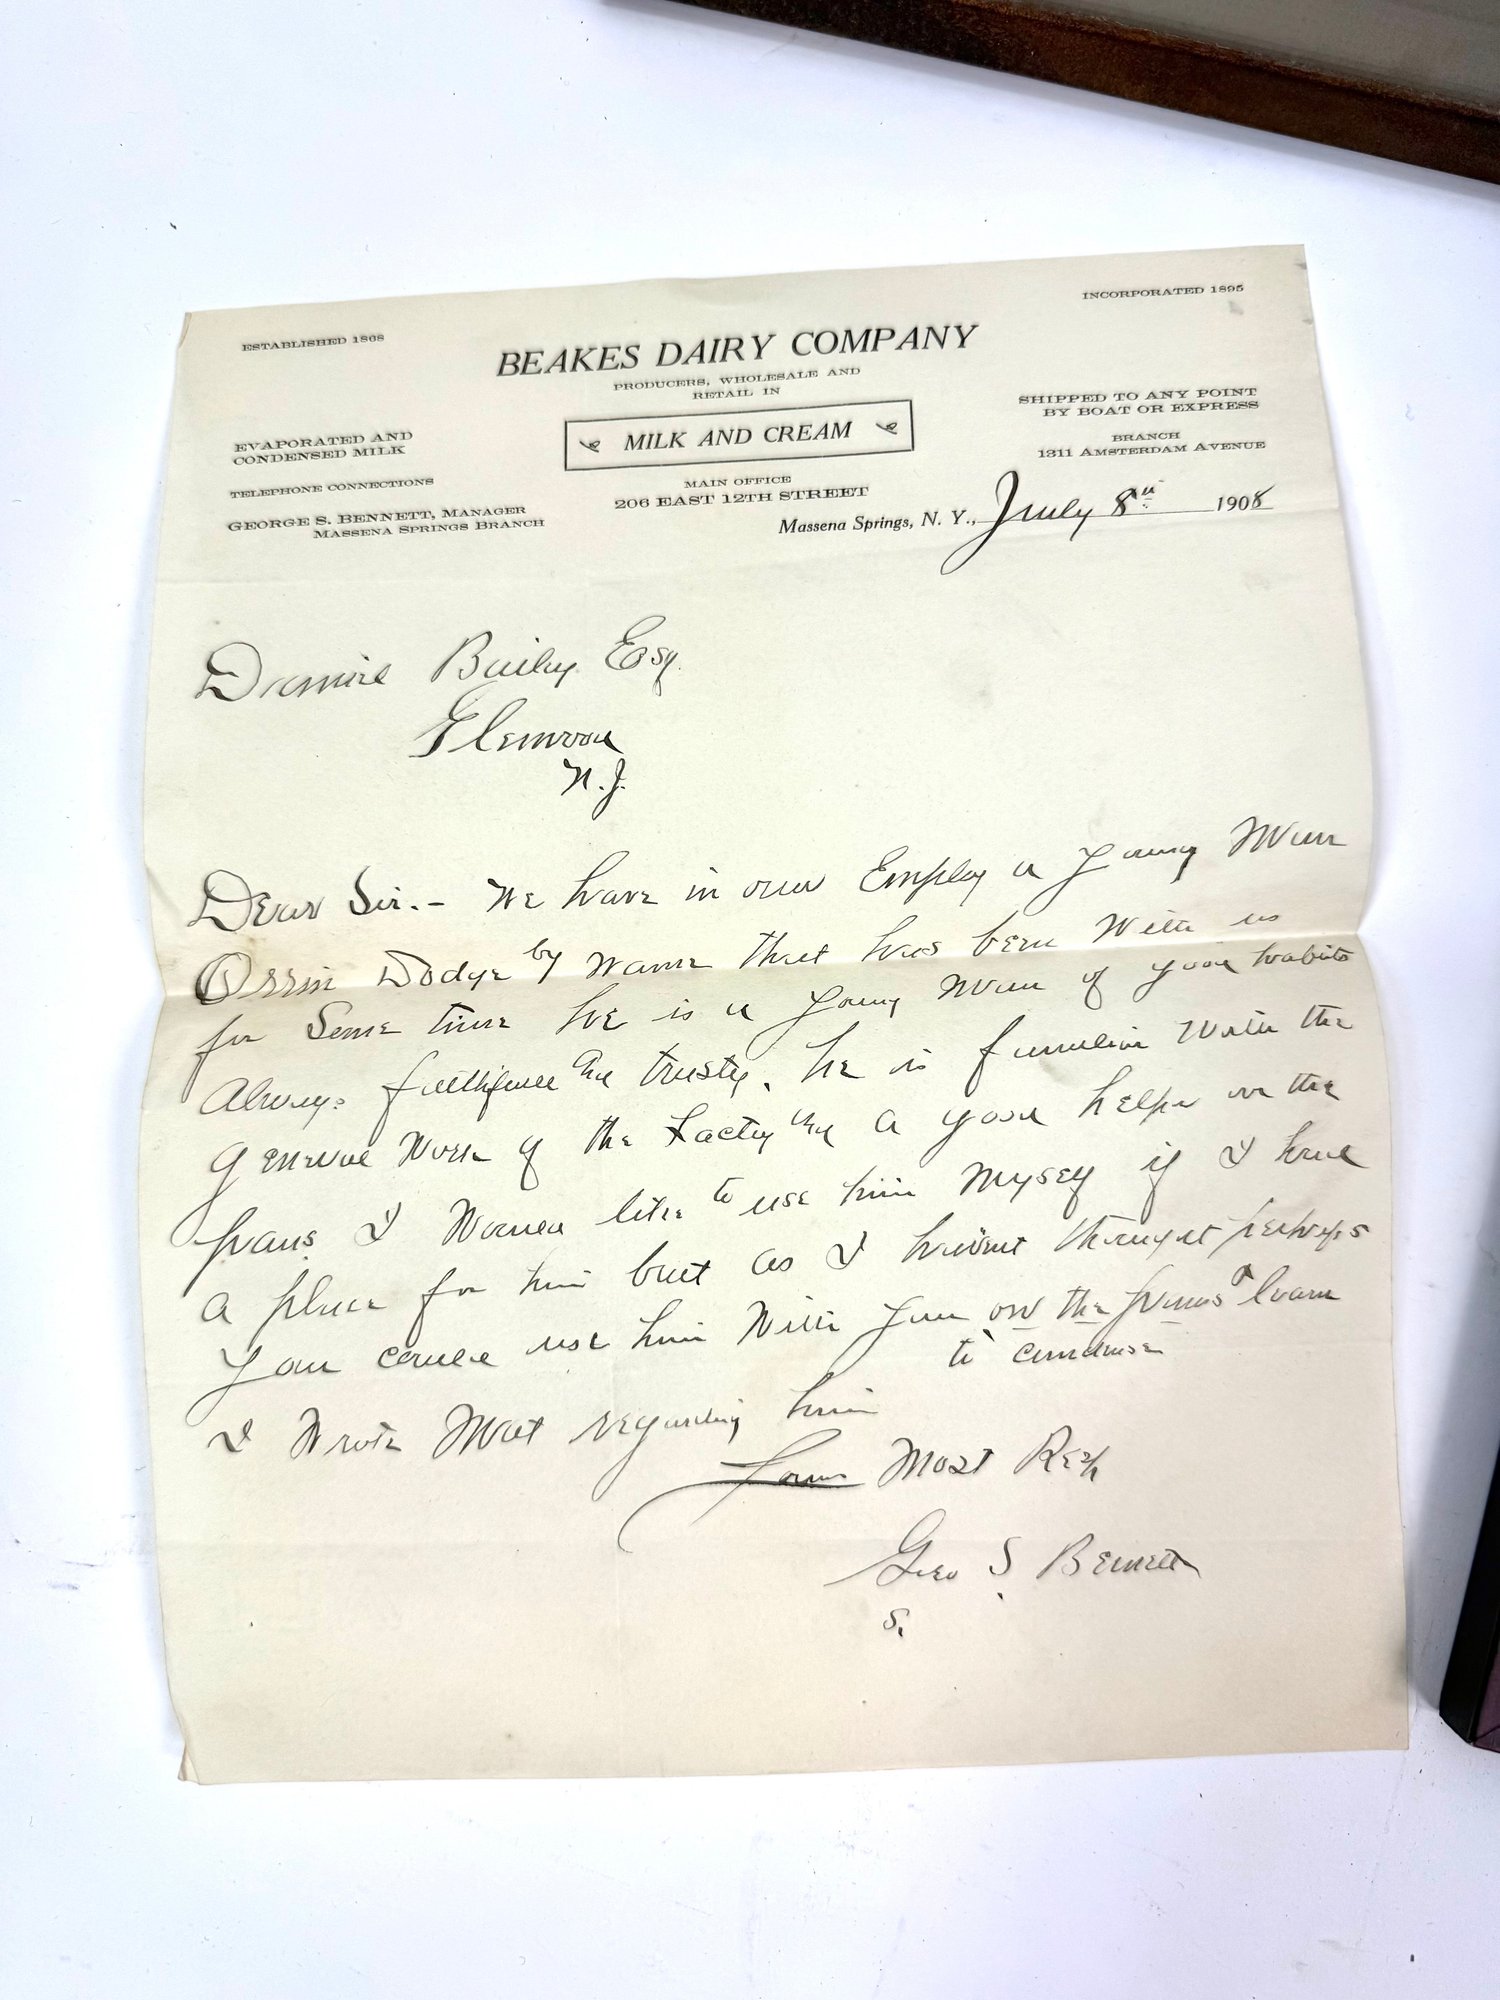 ESTABLISHED 1868
INCORPORATED 1895
BEAKES DAIRY COMPANY
PRODUCERS, WHOLESALE AND
RETAIL IN
MILK AND CREAM
EVAPORATED AND
CONDENSED MILK
TELEPHONE CONNECTIONS
GEORGE S. BENNETT, MANAGER
MASSENA SPRINGS BRANCH
MAIN OFFICE
206 EAST 12TH STREET
SHIPPED TO ANY POINT
BY BOAT OR EXPRESS
BRANCH
1311 AMSTERDAM AVENUE
Massena Springs, N. Y., July 8th 1908
Daniel Bailey Esq.
Glenwood
N.J.
Dear Sir.- We have in our Employ a young Man
Orrin Dodge by Name that has been With us
for Some time he is a young Man of good habits
Always faithfull and trusty. he is familiar With the
general Work of the Factory and a good helper on the
pans. I Would like to use him Myself if I had
a place for him but as I havent thought perhaps
you could use him With you on the pans or learn
to condense
I Wrote Mat regarding him
Yours Most Resp
Geo S. Bennett
S.